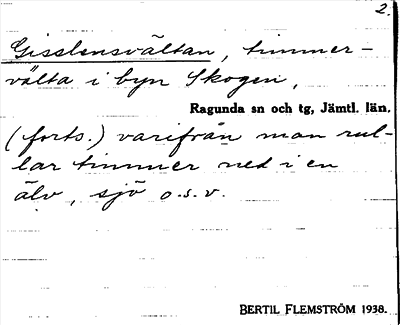 2.
Gisslensvältan, timmer-
välta i byn Skogen,
Ragunda sn och tg, Jämtl. län.
(forts.) varifrån man rul-
lar timmer ned i en
älv, sjö o.s.v.
BERTIL FLEMSTRÖM 1938.